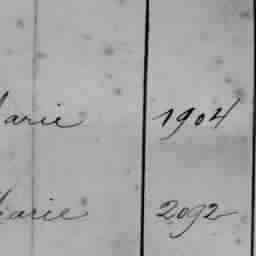 Marie 1904
Marie 2092